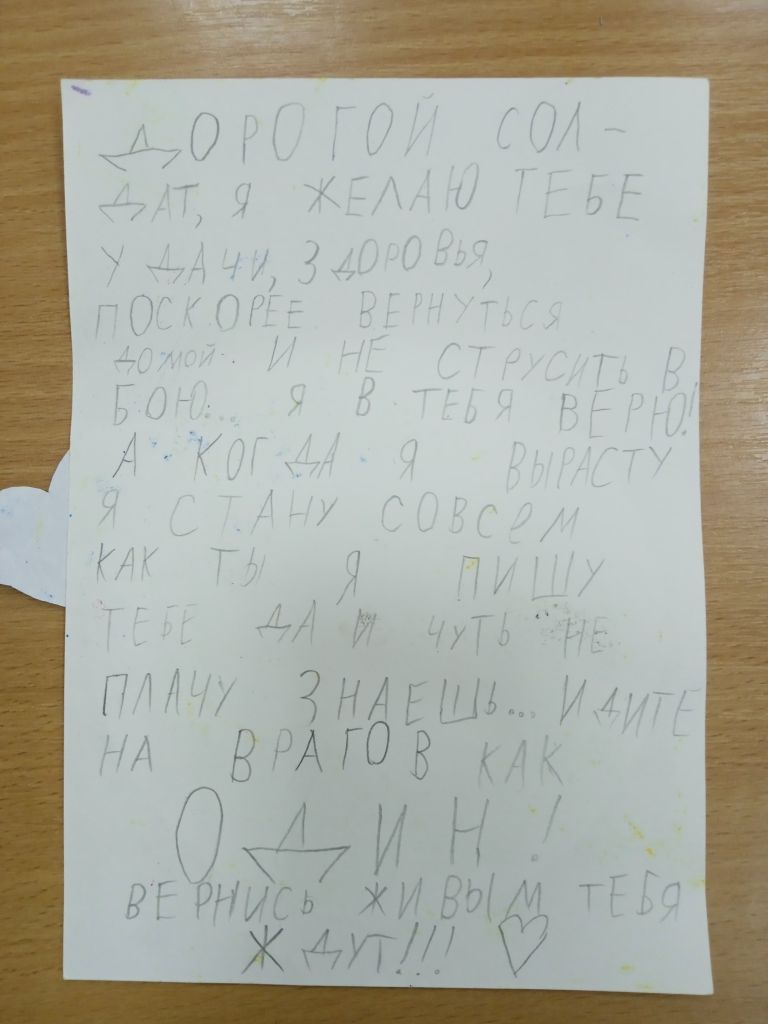 ДОРОГОЙ СОЛ-
ДАТ, Я ЖЕЛАЮ ТЕБЕ
УДАЧИ, ЗДОРОВЬЯ,
ПОСКОРЕЕ ВЕРНУТЬСЯ
ДОМОЙ.. И НЕ СТРУСИТЬ В
БОЮ... Я В ТЕБЯ ВЕРЮ!
А КОГДА Я ВЫРАСТУ
Я СТАНУ СОВСЕМ
КАК ТЫ Я ПИШУ
ТЕБЕ ДА И ЧУТЬ НЕ
ПЛАЧУ ЗНАЕШЬ... ИДИТЕ
НА ВРАГОВ КАК
ОДИН!
ВЕРНИСЬ ЖИВЫМ ТЕБЯ
ЖДУТ!!!